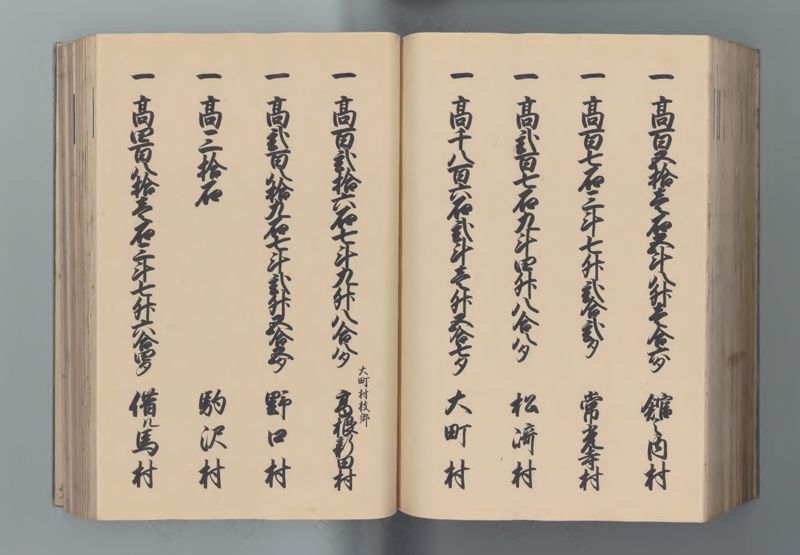 一 高百五拾壱石五斗八升壱合六夕 舘之内村
一 高百七石三斗七升弐合弐夕 常光寺村
一 高弐百七石九斗四升八合八夕 松済村
一 高千八百六石弐斗壱升五合七夕 大町村
一 高百弐拾六石七斗九升八合八夕 大町村枝郷 高根新田村
一 高弐百八拾九石七斗弐升五合五夕 野口村
一 高三拾石 駒沢村
一 高四百八拾壱石三斗七升六合四夕 借馬村